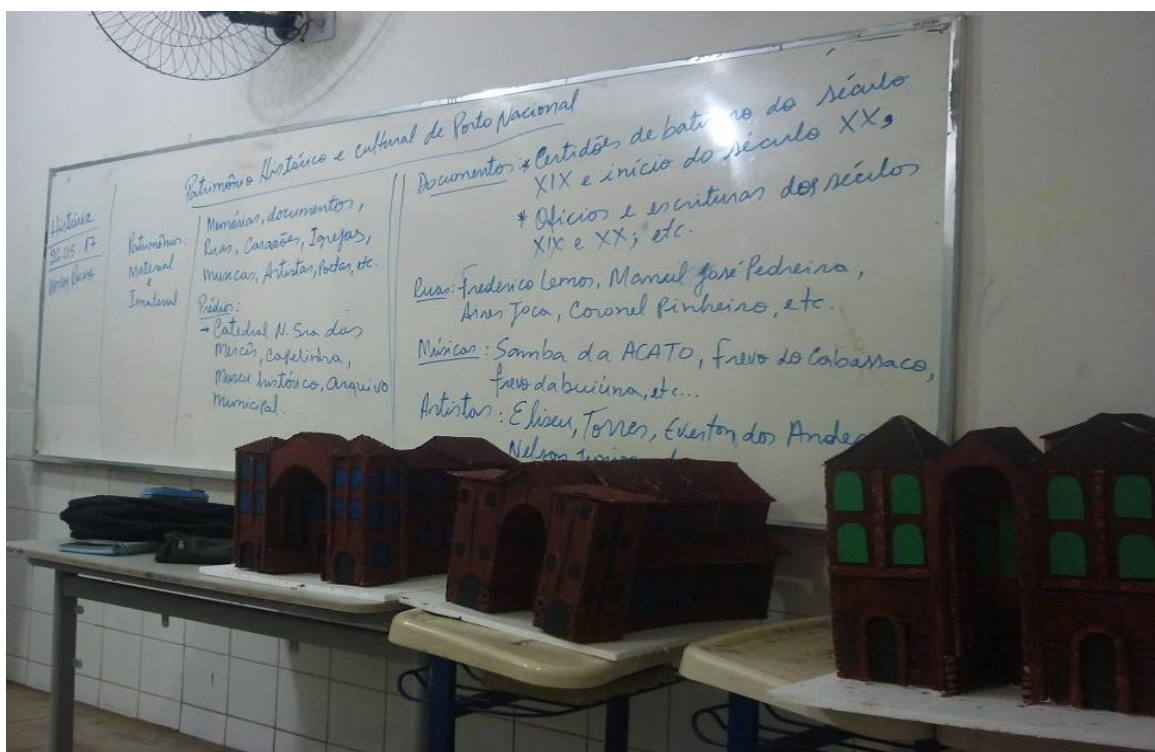 Patrimônio Histórico e cultural de Porto Nacional
História
26.05.17
Patrimônios:
Material
e
Imaterial
Memórias, documentos,
Ruas, Casarões, Igrejas,
músicas, Artistas, Poetas, etc.
Prédios:
→ Catedral N. Sra das
Mercês, Capelinha,
Museu histórico, arquivo
municipal.
Documentos: * Certidões de batismo do século
XIX e início do século XX,
* Ofícios e escrituras dos séculos
XIX e XX; etc.
Ruas: Frederico Lemos, Manuel José Pedreira,
Aires Joca, Coronel Pinheiro, etc.
Músicas: Samba da ACATO, frevo do Cabassaco,
frevo da buiúna, etc...
Artistas: Eliseu, Torres, Everton dos Andes
Nelson